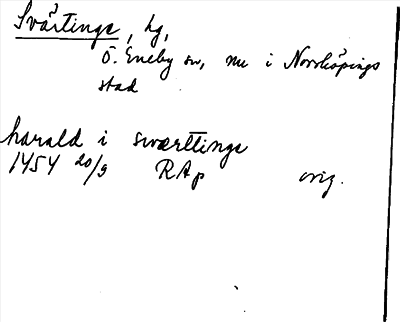 Svärtinge, hg,
Ö. Eneby sn, nu i Norrköpings
stad
harald i swærttinge
1454 20/9 RAp orig.